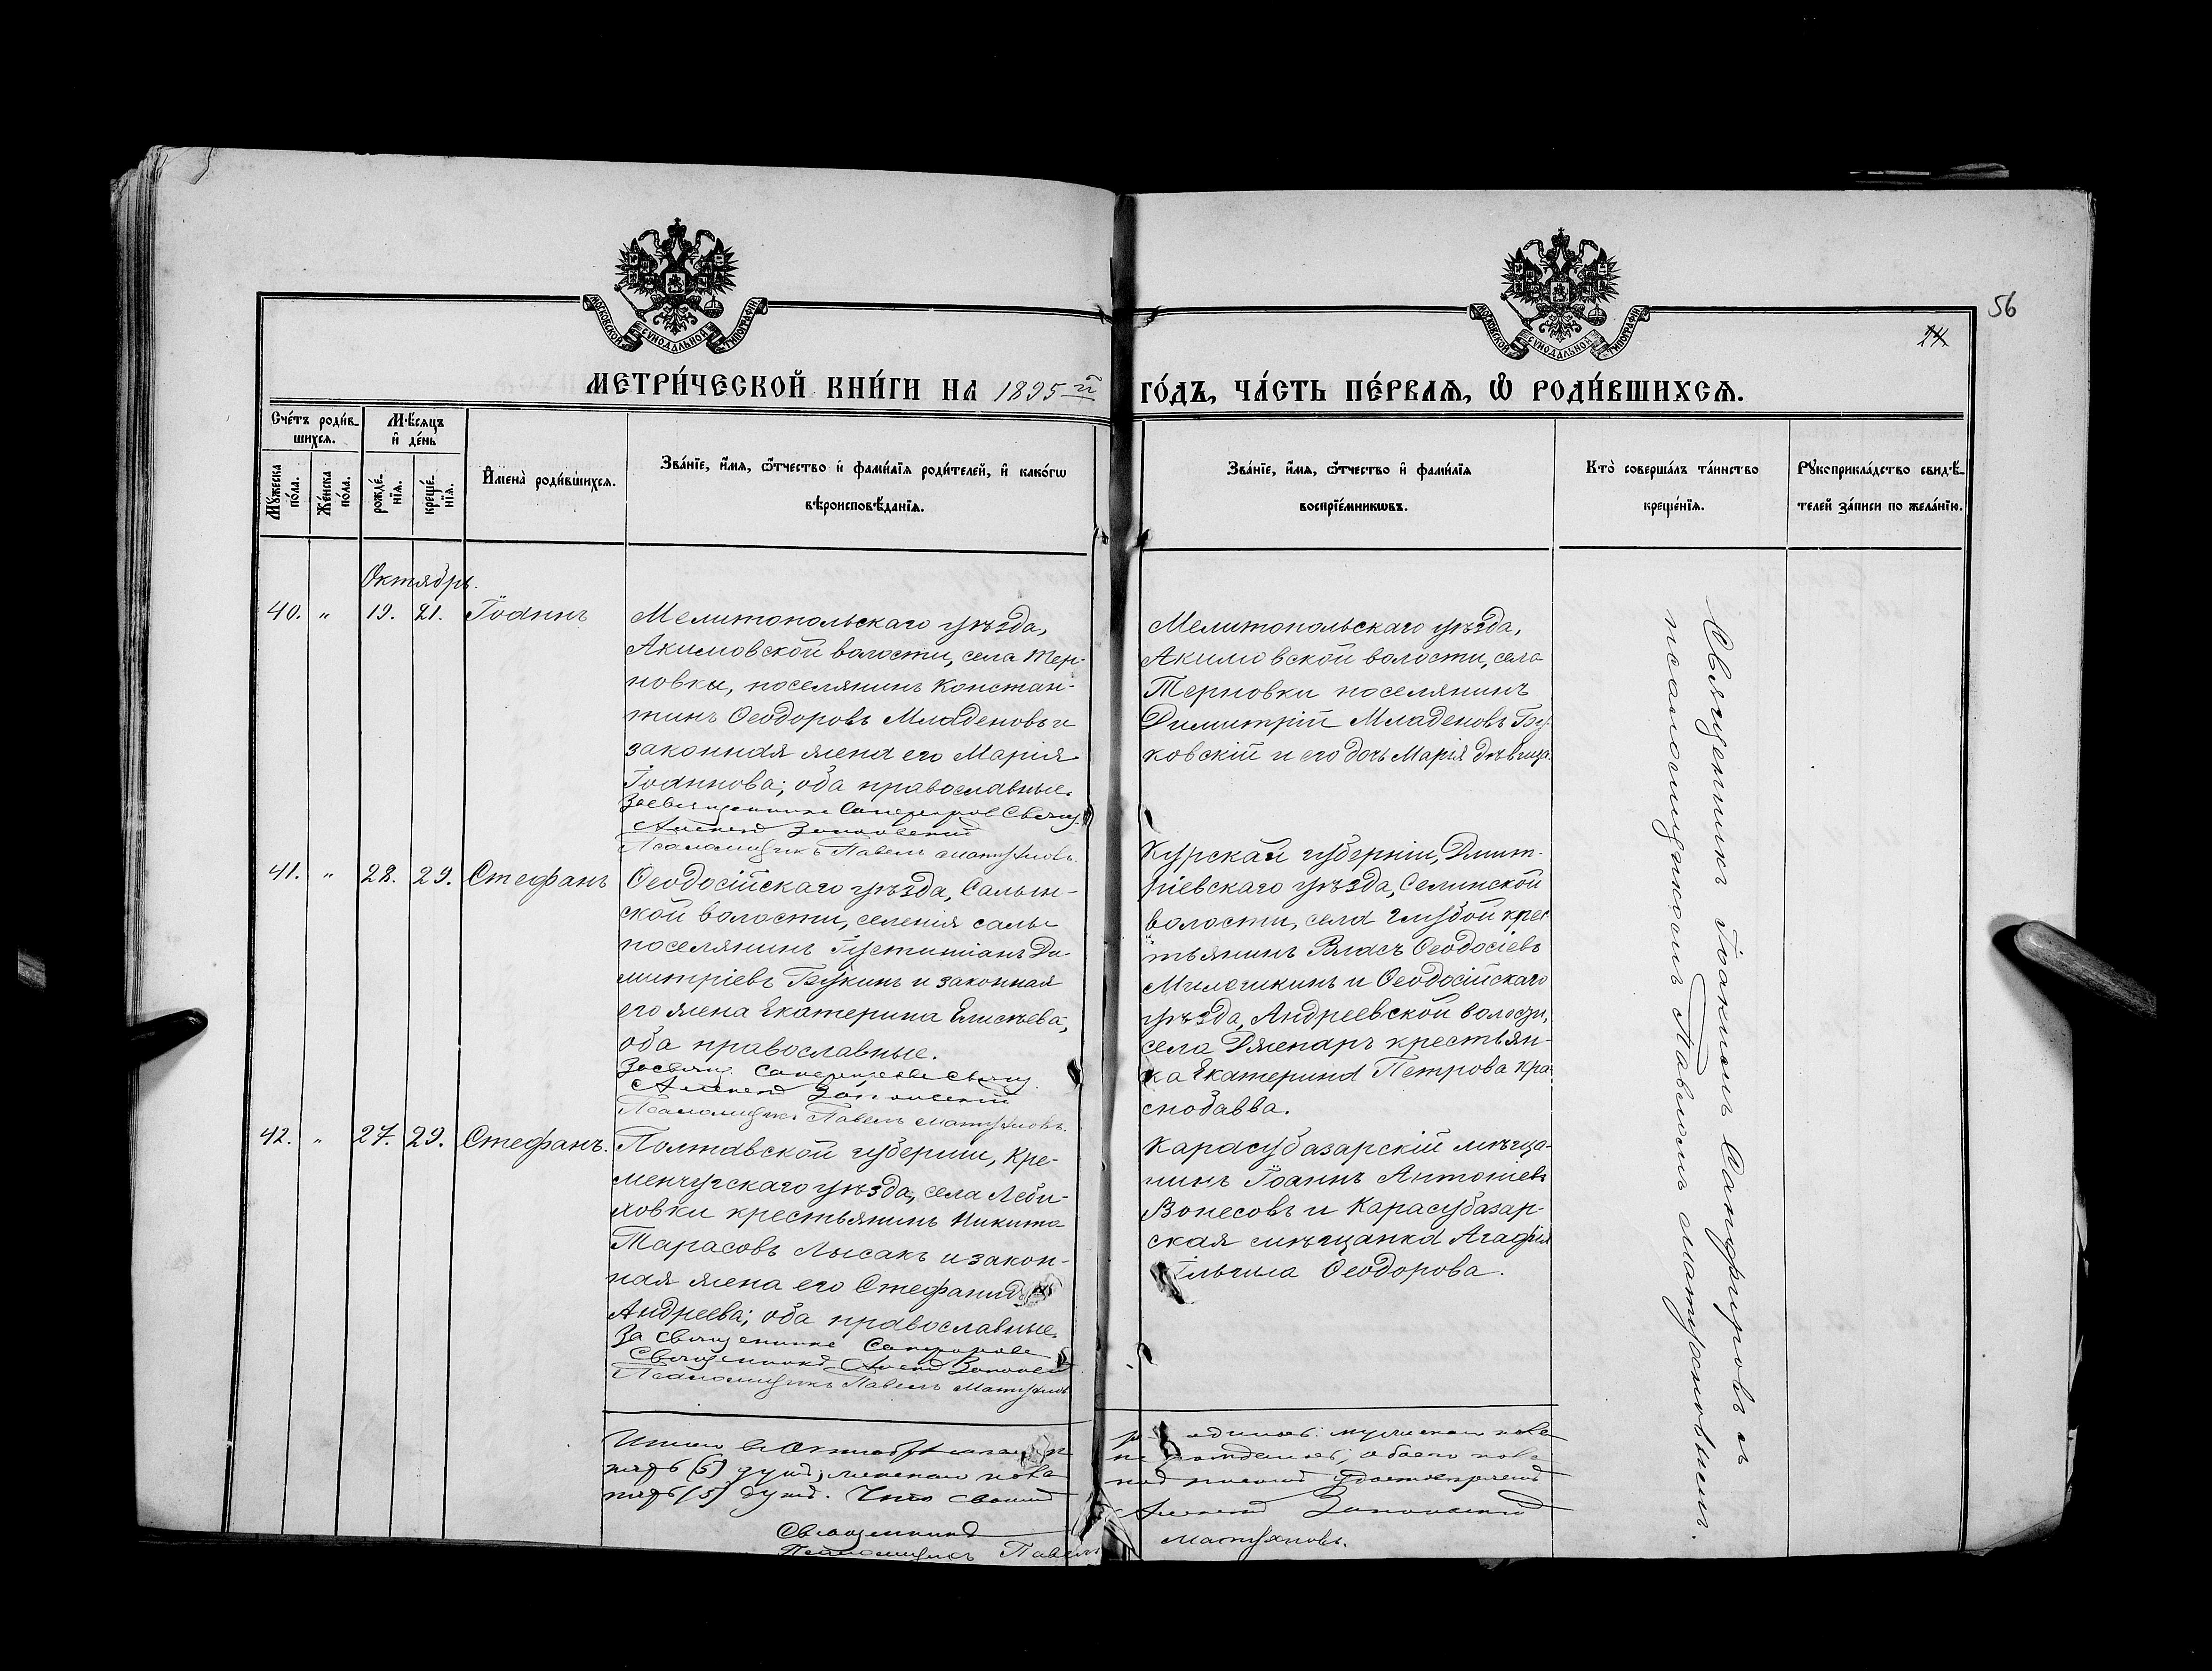 56
24
МОСКОВСКОЙ СѴНОДАЛЬНОЙ ТИПОГРАФІИ
МОСКОВСКОЙ СѴНОДАЛЬНОЙ ТИПОГРАФІИ
МЕТРИ́ЧЕСКОЙ КНИ́ГИ НА 1895 й ГО́ДЪ, ЧА́СТЬ ПЕ́РВАЯ, Ѡ РОДИ́ВШИХСѦ.
Сче́тъ роди́в-
шихся.
Му́жеска по́ла.
Же́нска по́ла.
Мѣ́сяцъ
и де́нь
рожде́-
нїя.
креще́-
нїя.
Имена̀ роди́вшихся.
Зва́нїе, и́мя, ѻ́тчество и фами́лїя роди́телей, и како́гѡ
вѣроисповѣ́данїя.
Зва́нїе, и́мя, ѻ́тчество и фами́лїя
воспрїе́мникѡвъ.
Кто̀ соверша́лъ та́инство
креще́нїя.
Рукоприкла́дство свидѣ́-
телей за́писи по жела́нїю.
Октябрь.
40. " 19. 21. Іоаннъ
Мелитопольскаго уѣзда,
Акимовской волости, села Тер-
новки, поселянинъ Констан-
тинъ Ѳеодоровъ Младеновъ и
законная жена его Марія
Іоаннова; оба православные.
Александ Запольскій
Псаломщикъ Павелъ
Мелитопольскаго уѣзда,
Акимовской волости, села
Терновки поселянинъ
Димитрій Младеновъ Бу-
ковскій и его дочь Марія дѣвица.
41. " 28. 29. Стефанъ
Ѳеодосійскаго уѣзда, Салын-
ской волости, селенія Салы
поселянинъ Іустиніанъ Ди-
митріевъ Букинъ и законная
его жена Екатерина Елисѣева,
оба православные.
Псаломщикъ Павелъ
Курской губерніи, Дмит-
ріевскаго уѣзда, Селинской
волости, села Глубой крес-
тьянинъ Власъ Ѳеодосіевъ
Милешкинъ и Ѳеодосійскаго
уѣзда, Андреевской волости,
села Дженаръ крестьян-
ка Екатерина Петрова Кра-
снобавва.
42. " 27. 29. Стефанъ.
Полтавской губерніи, Кре-
менчугскаго уѣзда, села Леби-
ховки крестьянинъ Никита
Тарасовъ Лысакъ и закон-
ная жена его Стефанида
Андреева; оба православные.
За священника Сапфирова
Священникъ
Псаломщикъ Павелъ
Карасубазарскій мѣща-
нинъ Іоаннъ Антоніевъ
Вонесовъ и Карасубазар-
ская мѣщанка Агафія
Ильина Ѳеодорова.
Священникъ Іоакимъ Сапфировъ съ
псаломщикомъ Павломъ
пять (5) душъ; женскаго пола
пять (5) душъ. Что своимъ
Священникъ
Псаломщикъ Павелъ